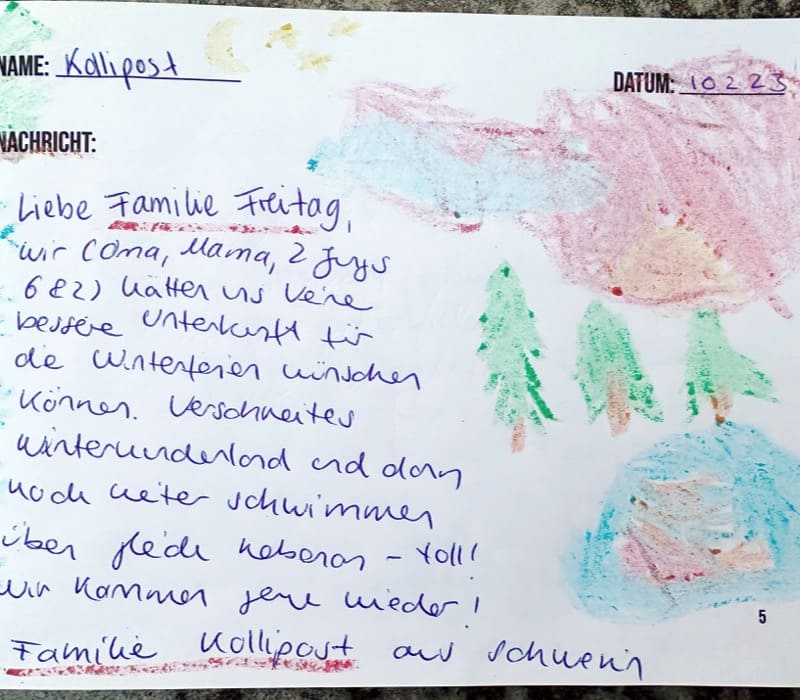 NAME: Kollipost
DATUM: 10.2.23
NACHRICHT:
Liebe Familie Freitag,
wir (Oma, Mama, 2 Jungs
6 & 2) hätten uns keine
bessere Unterkunft für
die Winterferien wünschen
können. Verschneites
Winterwunderland und dann
noch weiter schwimmen
über gleich nebenan – toll!
Wir kommen gerne wieder!
5
Familie Kollipost aus Schwerin